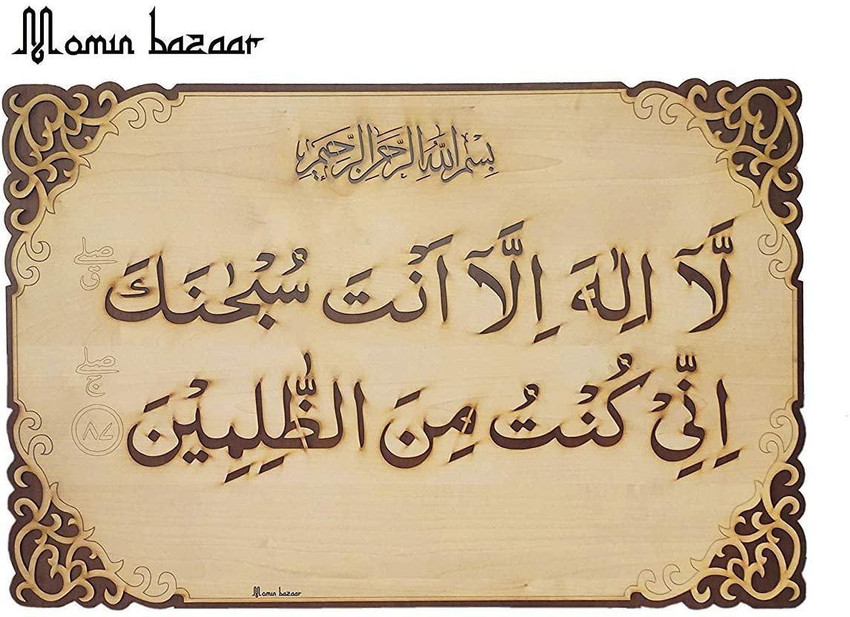 Momin bazaar
بِسْمِ اللّٰهِ الرَّحْمٰنِ الرَّحِيْمِ
لَّاۤ اِلٰهَ اِلَّاۤ اَنْتَ سُبْحٰنَكَ صلے ق
اِنِّيْ كُنْتُ مِنَ الظّٰلِمِيْنَ صلے ج ۸۷
Momin bazaar